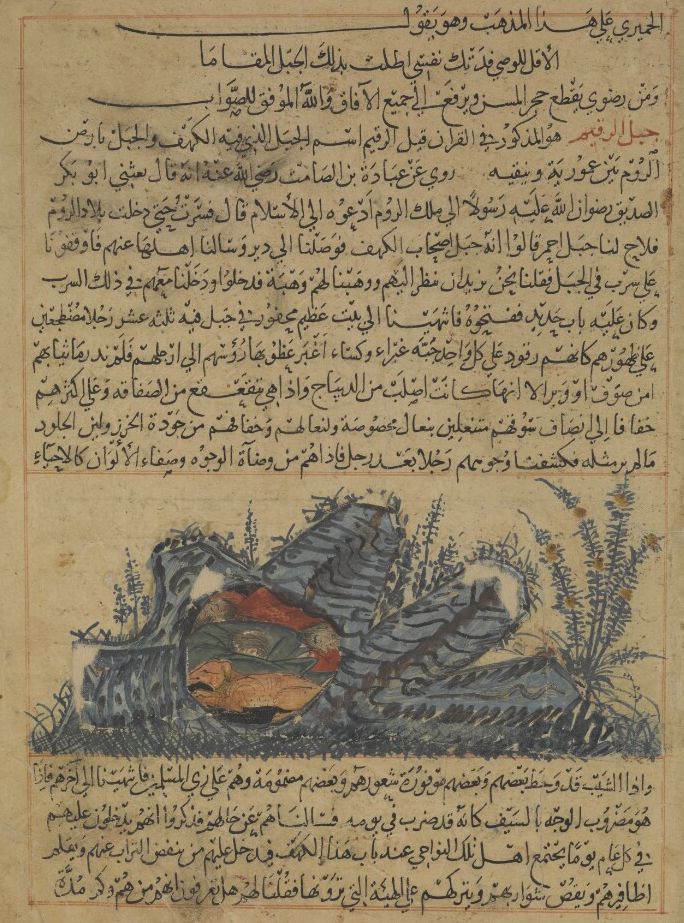 الحميري على هذا المذهب وهو يقول
الا قل للوصي فدتك نفسي اطلت بذلك الجبل المقاما
ومن رضوى يقطع حجر المسن ويرفع الى جميع الآفاق والله الموفق للصواب
جبل الرقيم هو المذكور في القران قيل الرقيم اسم الجبل الذي فيه الكهف والجبل بارض
الروم بين عمورية ونيقيه روي عن عبادة بن الصامت رضي الله عنه انه قال بعثني ابو بكر
الصديق رضوان الله عليه رسولا الى ملك الروم ادعوه الى الاسلام قال فسرت حتى دخلت بلاد الروم
فلاح لنا جبل احمر قالوا انه جبل اصحاب الكهف فوصلنا الى دير وسالنا اهلها عنهم فاوقفونا
على سرب في الجبل فقلنا نحن نريد ان ننظر اليهم ووهبنا لهم وهبة فدخلوا ودخلنا معهم في ذلك السرب
وكان عليه باب حديد ففتحوه فانتهينا الى بيت عظيم محفور في جبل فيه ثلثه عشر رجلا مضطجعين
على ظهورهم كانهم رقود على كل واحد جبته غبراء وكساء اغبر غطو بها رؤسهم الى ارجلهم فلم ندر ما ثيابهم
امن صوف او وبر الا انها كانت اصلب من الديباج واذا هي تتقعقع من الصفاقه وعلى اكثرهم
خفافا الى انصاف سوقهم متنعلين بنعال مخصوصة ولنعالهم وخفافهم من جودة الخرز ولين الجلود
ما لم ير مثله فكشفنا وجوههم رجلا بعد رجل فاذا هم من وضاة الوجوه وصفاء الالوان كالاحياء
واذا الشيب قد وخط بعضهم وبعضهم موفورة شعورهم وبعضهم مضمومة وهم على زي المسلمين فانتهينا الى آخرهم فاذا
هو مضروب الوجه بالسيف كانه قد ضرب في يومه فسالناهم عن حالهم فذكروا انهم يدخلون عليهم
في كل عام يوما يجتمع اهل تلك النواحي عند باب هذا الكهف فيدخل عليهم من ينفض التراب عنهم ويقلم
اظافيرهم ويقص شواربهم ويتركهم على الهيئة التي ترونها فقلنا لهم هل تعرفون انهم من هم وكم مدة